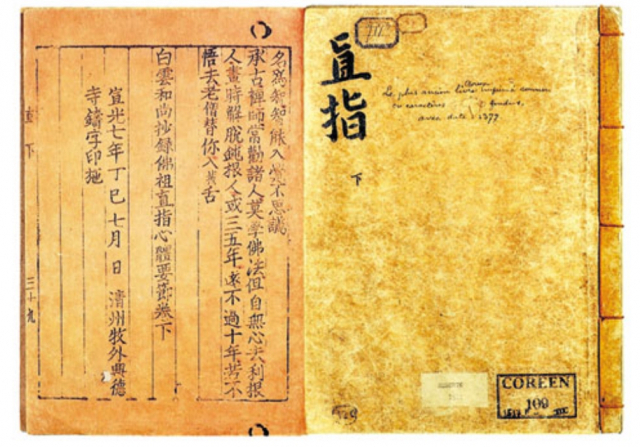 III
直指
下
Le plus ancien livre coréen imprimé connu
en caractères fondus,
avec date = 1377
COREEN
109
名爲知知能入不思議
承古禪師常勸諸人莫學佛法但自無心去利根
人晝時解脫鈍根人或三五年遠不過十年若不
悟去老僧替你入拔舌
白雲和尙抄錄佛祖直指心體要節卷下
宣光七年丁巳七月 日 淸州牧外興德
寺鑄字印施
直下
三十九